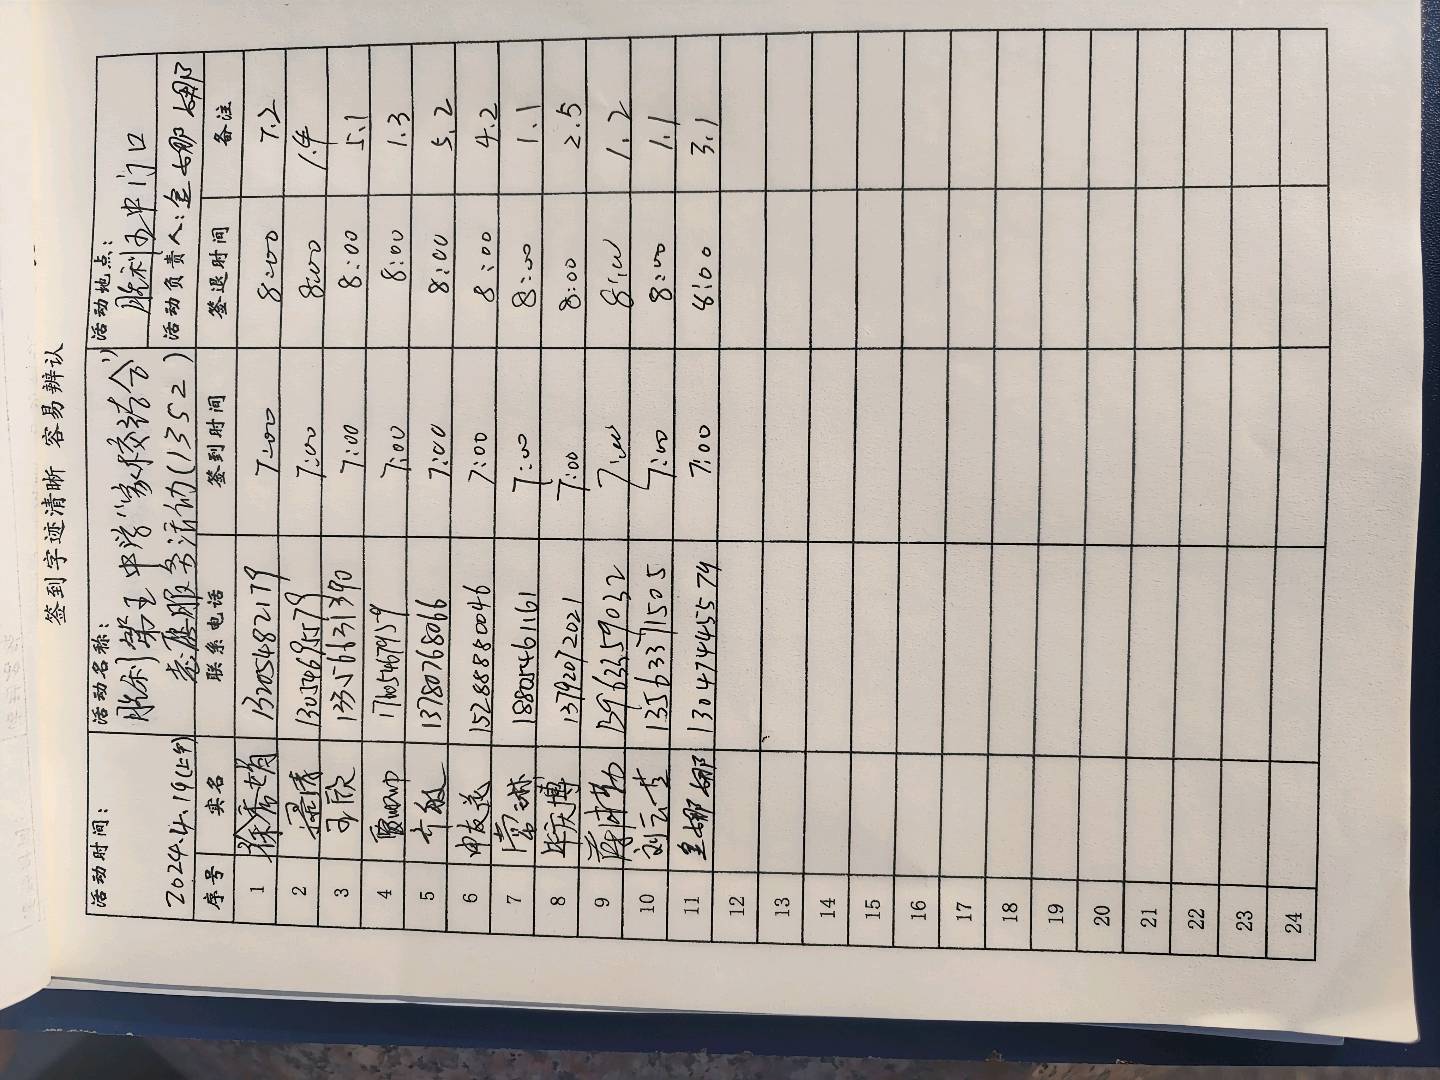 签到字迹清晰 容易辨认
活动时间： 活动名称： 活动地点：
2024.4.19(上午) 胜利第五中学“家校讨会” 胜利五中门口
志愿服务活动(1352) 活动负责人：
序号 实名 联系电话 签到时间 签退时间 备注
1 徐秀娟 13205482179 7:00 8:00 7.2
2 13054695579 7:00 8:00 1.4
3 王欣 13356631390 7:00 8:00 5.1
4 17105467959 7:00 8:00 1.3
5 13780768066 7:00 8:00 5.2
6 申友美 15288880046 7:00 8:00 4.2
7 常琳 18805461161 7:00 8:00 1.1
8 毕庆博 13792072021 7:00 8:00 2.5
9 13963359032 7:00 8:00 1.2
10 刘云芝 13563371505 7:00 8:00 1.1
11 13047445579 7:00 8:00 3.1
12
13
14
15
16
17
18
19
20
21
22
23
24